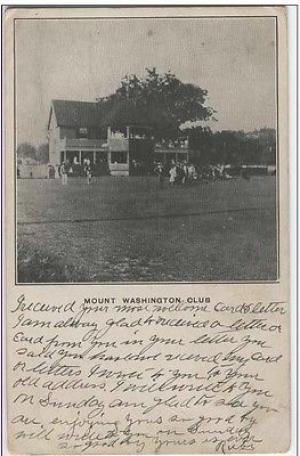 MOUNT WASHINGTON CLUB
I received your most welcome Card & letter
I am alway glad to received a letter or
Card from you in your letter you
said you have not received my card
or letters I wrote to you to your
old address. I will write to you
on Sunday am glad to see you
are enjoying yours so good by
will write to you on Sunday
so good by yours is ever
Russ